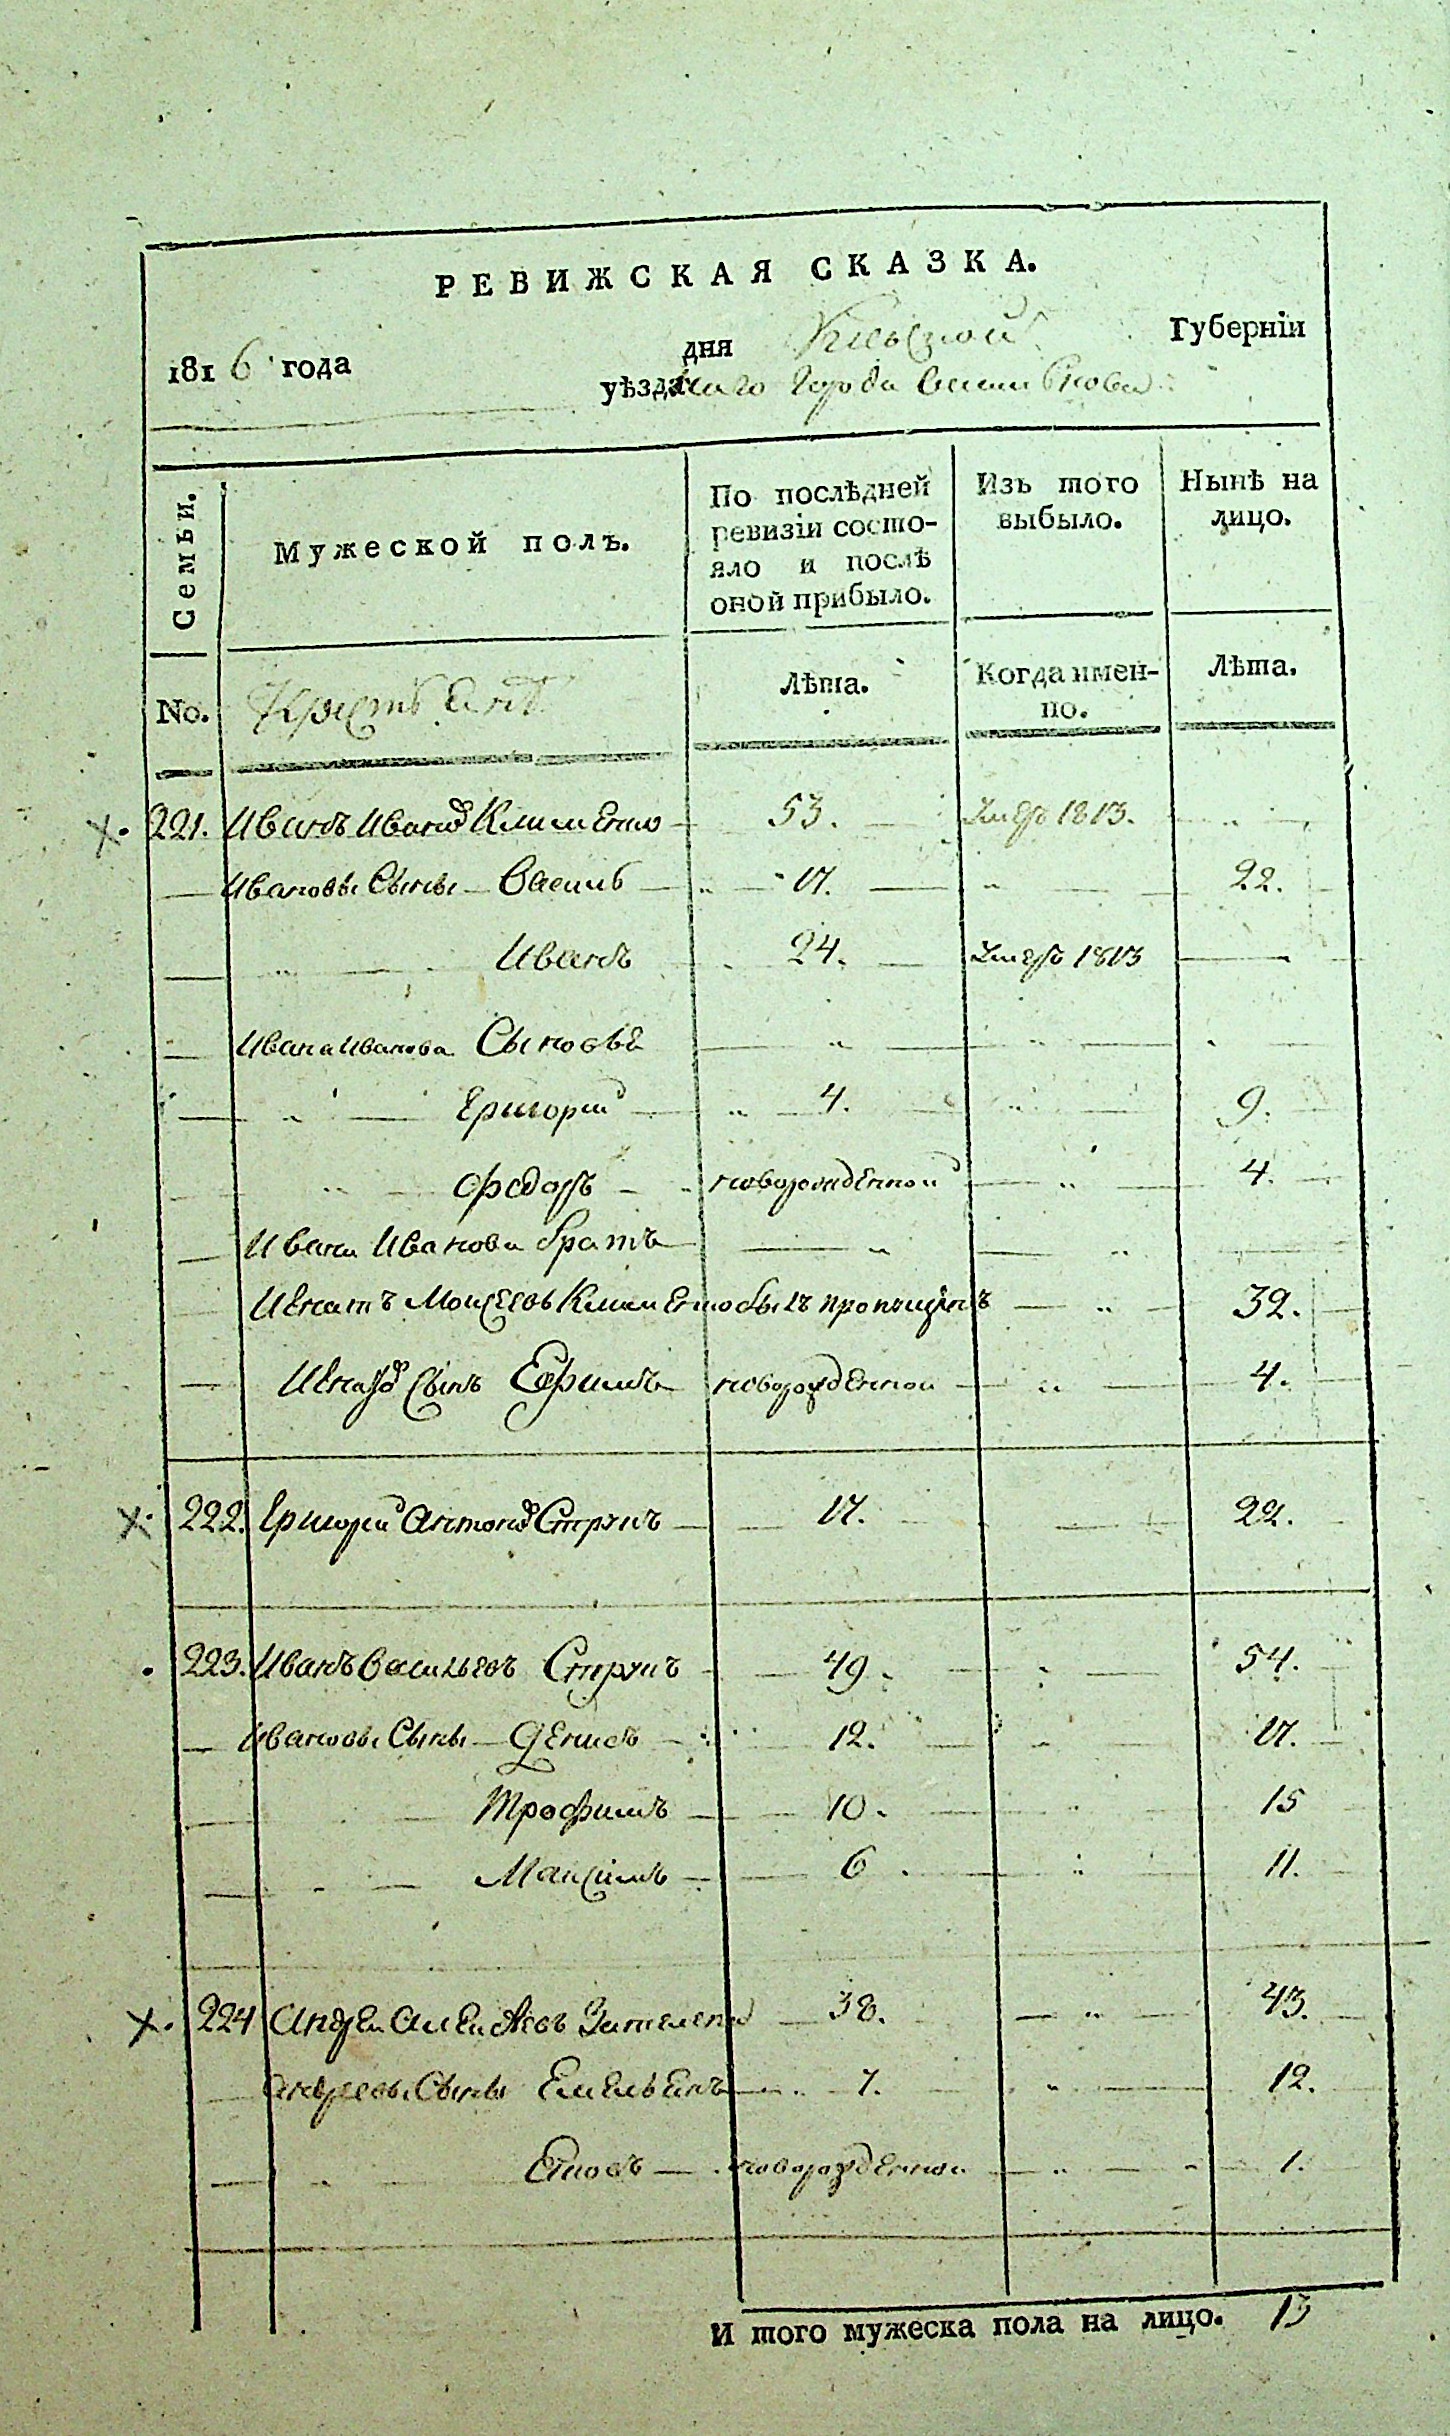 РЕВИЖСКАЯ СКАЗКА.
1816 года дня Киевской Губерніи
уѣзда города
Семьи.
Мужеской полъ.
По послѣдней ревизіи состо-
яло и послѣ оной прибыло.
Изъ того выбыло.
Нынѣ на лицо.
No.
Лѣта.
Когда имен-
но.
Лѣта.
221. Иванъ Иванов Клименко 53. Умеръ 1813.
Ивановы Сыны Василь 17. " 22.
" Иванъ 24. Умеръ 1813
Ивана Иванова Сыновья " "
" Григорий " 4. " 9.
" Федоръ новорожденной " 4.
Ивана Иванова братъ " "
Игнатъ Моисеевъ Клименко былъ пропущенъ " 32.
Игнатов Сынъ Ефримъ новорожденной " 4.
222. Григорий Антонов Струкъ 17. 22.
223. Иванъ Васильевъ Струкъ 49. " 54.
Ивановы Сыны Денисъ 12. " 17.
Трофимъ 10. " 15
Максимъ 6. " 11.
224 Андрей Алексѣевъ 38. " 43.
Андреевы Сыны Емельянъ 7. " 12.
" новорожденной " 1.
И того мужеска пола на лицо. 13